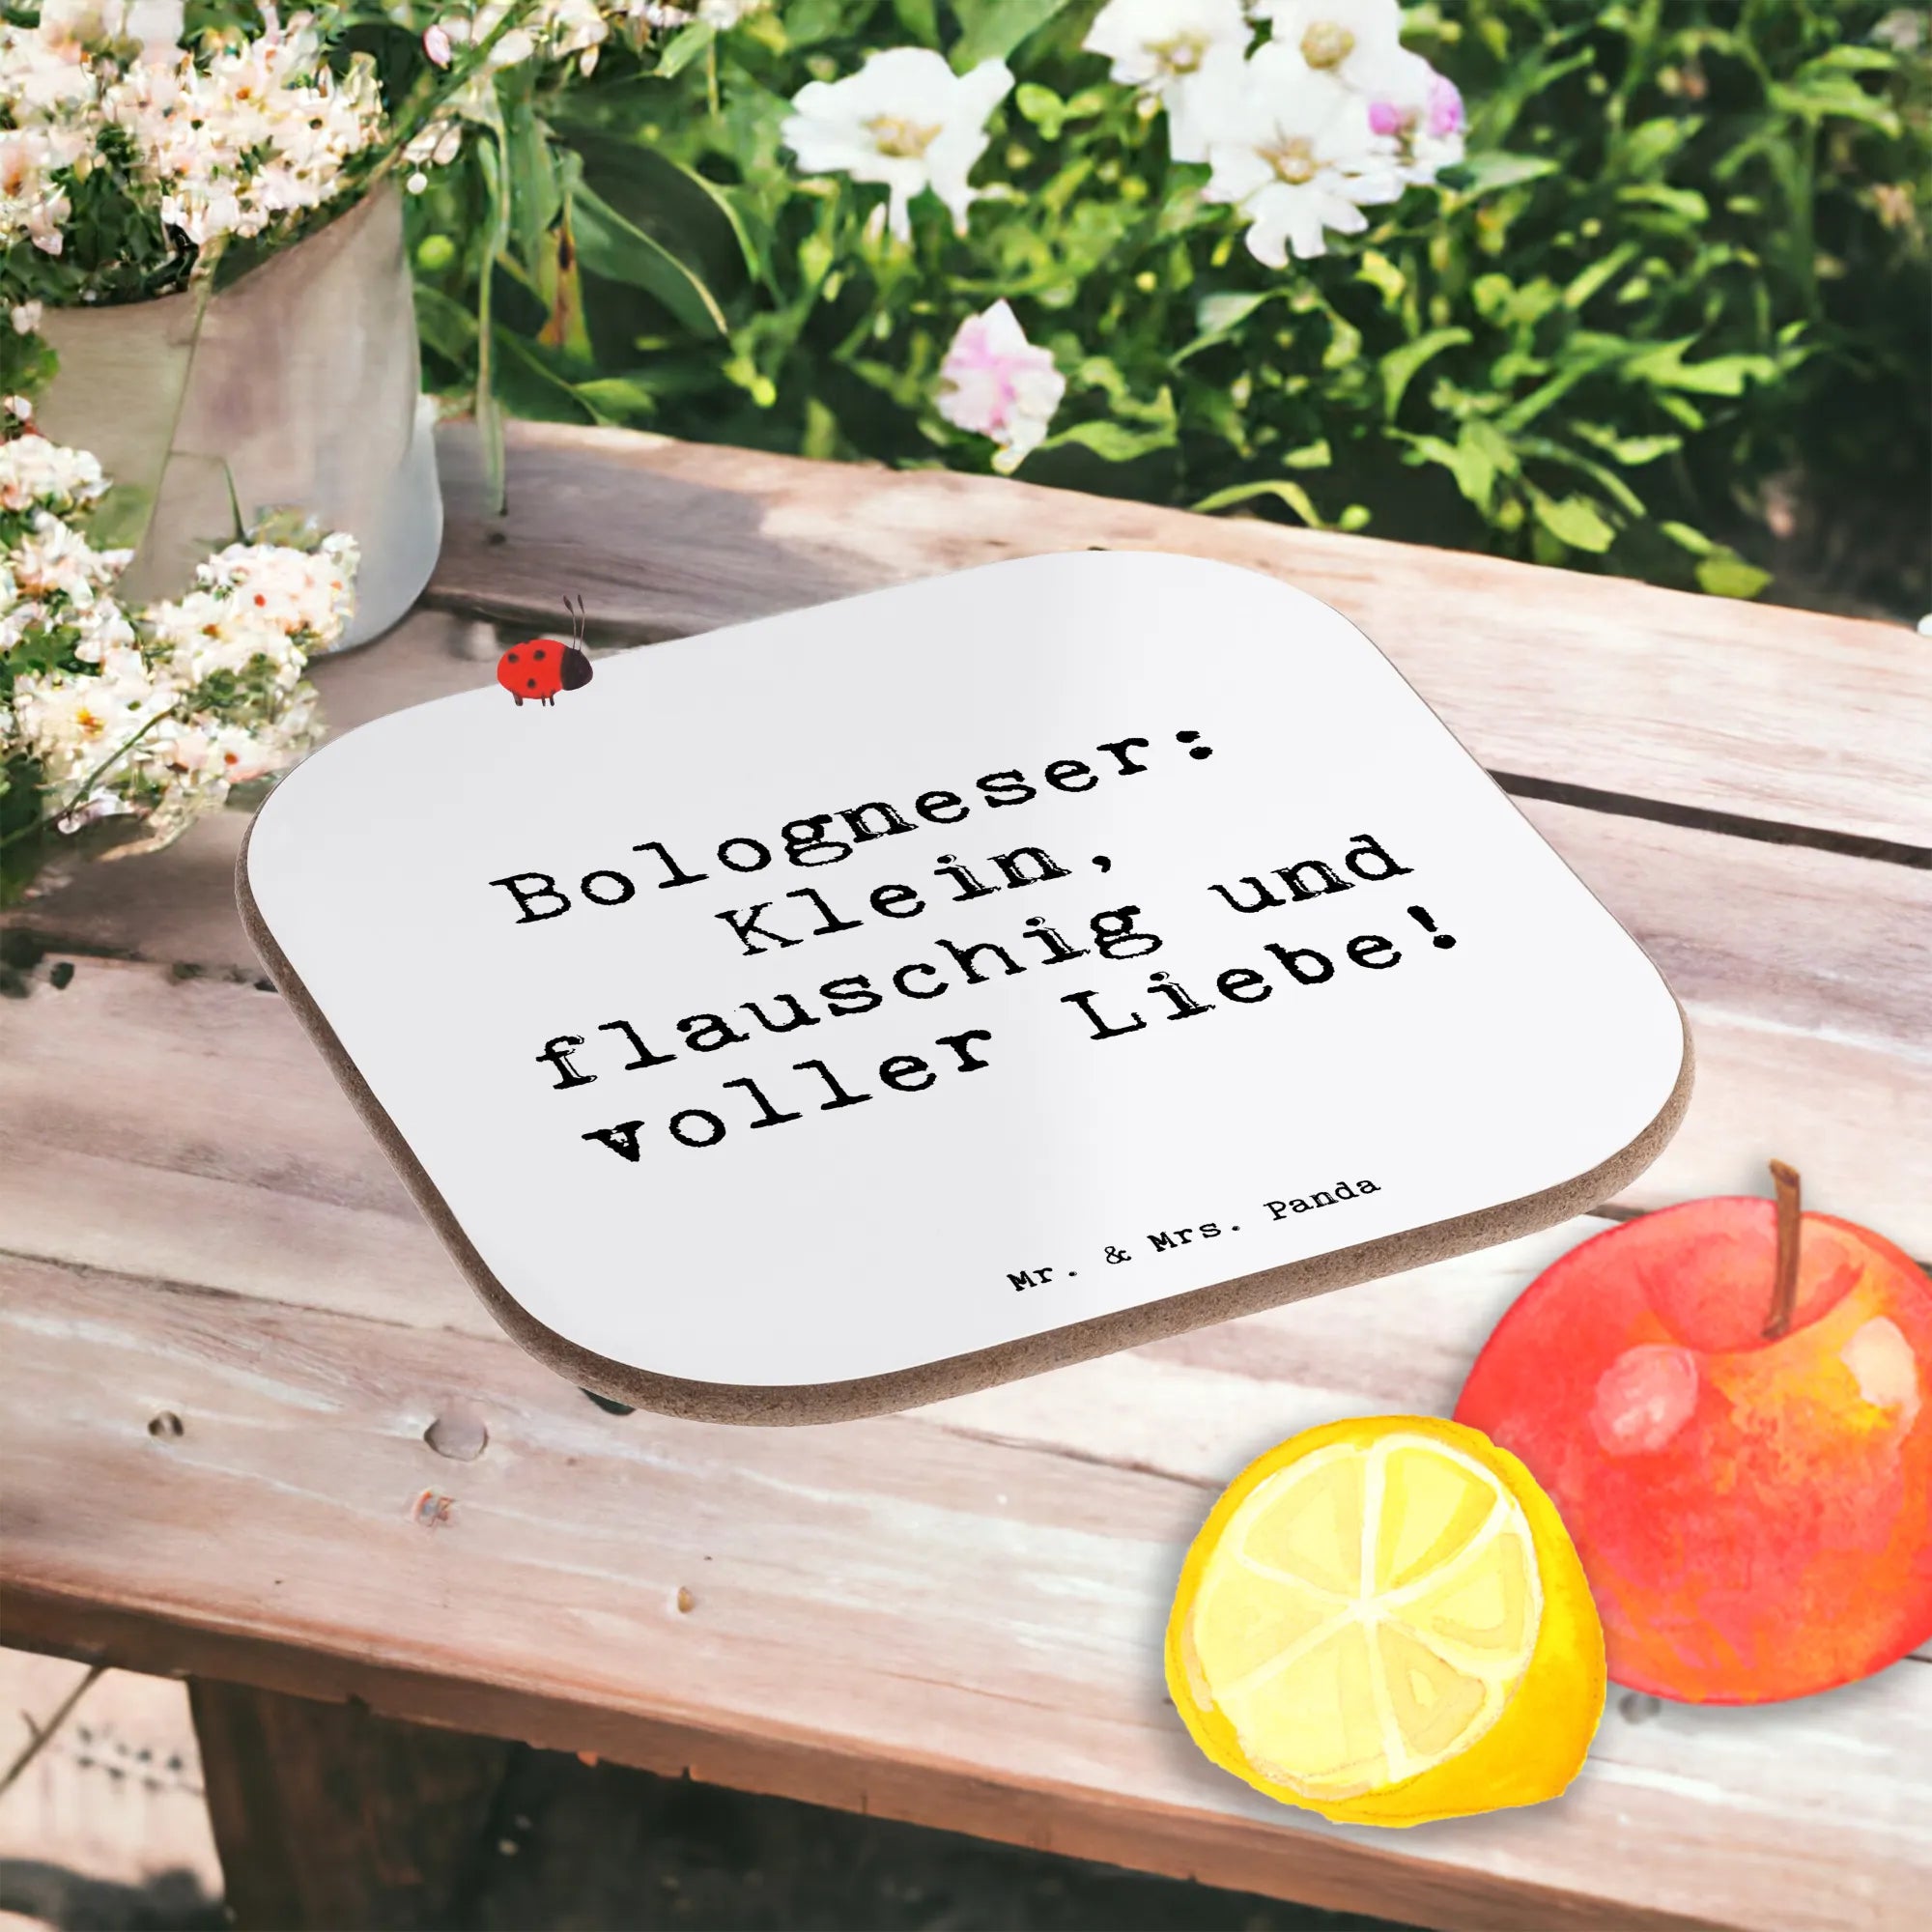 Bologneser:
Klein,
flauschig und
voller Liebe!
Mr. & Mrs. Panda